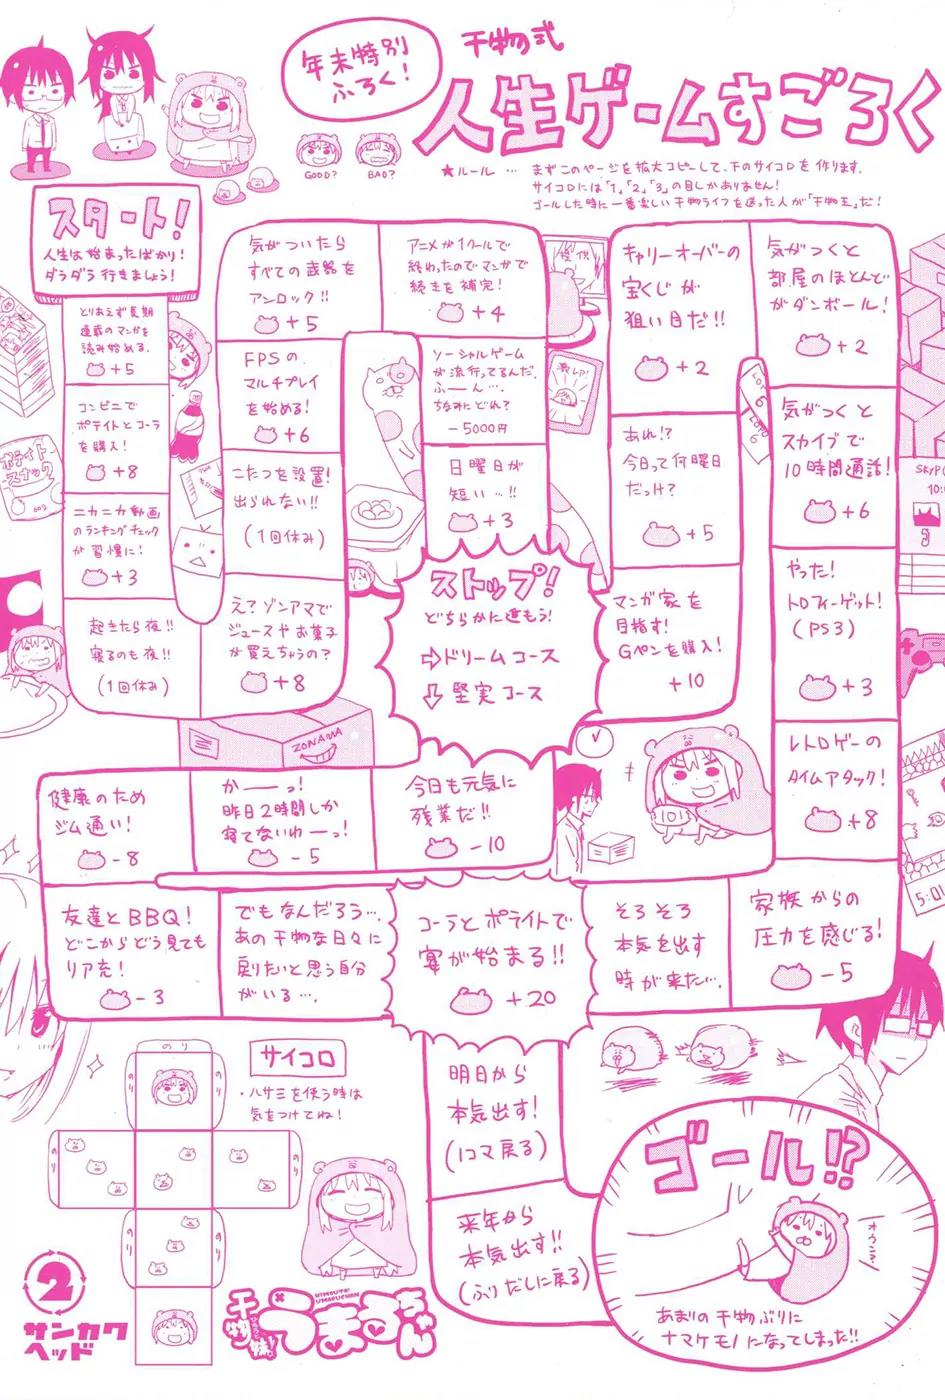 年末特別
ふろく！
干物式
人生ゲームすごろく
GOOD?
BAD?
★ルール … まずこのページを拡大コピーして、下のサイコロを作ります。
サイコロには「1」「2」「3」の目しかありません！
ゴールした時に一番楽しい干物ライフを送った人が「干物王」だ！
スタート！
人生は始まったばかり！
ダラダラ行きましょう！
とりあえず長期
連載のマンガを
読み始める。
+5
コンビニで
ポテイトとコーラ
を購入！
+8
ニカニカ動画
のランキングチェック
が習慣に！
+3
起きたら夜!!
寝るのも夜!!
(1回休み)
え?ゾンアマで
ジュースやお菓子
が買えちゃうの?
+8
こたつを設置!
出られない!!
(1回休み)
FPSの
マルチプレイ
を始める!
+6
気がついたら
すべての武器を
アンロック!!
+5
アニメが1クールで
終わったのでマンガで
続きを補完!
+4
ソーシャルゲーム
が流行ってるんだ。
ふーん…。
ちなみにどれ?
-5000円
日曜日が
短い…!!
+3
ストップ!
どちらかに進もう!
⇨ドリームコース
⇩堅実コース
マンガ家を
目指す!
Gペンを購入!
+10
あれ!?
今日って何曜日
だっけ?
+5
キャリーオーバーの
宝くじが
狙い目だ!!
+2
気がつくと
部屋のほとんど
がダンボール!
+2
気がつくと
スカイプで
10時間通話!
+6
やった!
トロフィーゲット!
(PS3)
+3
レトロゲーの
タイムアタック!
+8
家族からの
圧力を感じる!
-5
そろそろ
本気を出す
時が来た…。
今日も元気に
残業だ!!
-10
かーーっ!
昨日2時間しか
寝てないわーっ!
-5
健康のため
ジム通い!
-8
友達とBBQ!
どこからどう見ても
リア充!
-3
でもなんだろう…。
あの干物な日々に
戻りたいと思う自分
がいる…。
コーラとポテイトで
宴が始まる!!
+20
明日から
本気出す!
(1コマ戻る)
来年から
本気出す!!
(ふりだしに戻る)
ゴール!?
オウン?
あまりの干物ぶりに
ナマケモノになってしまった!!
ポテイト
スナック
60g
激レア!
LOTO
6
LOTO
6
ZONAMA
サイコロ
・ハサミを使う時は
気をつけてね!
のり
のり
のり
のり
のり
のり
のり
2
サンカク
ヘッド
HIMOUTO!
UMARUCHAN
干物妹!
うまるちゃん